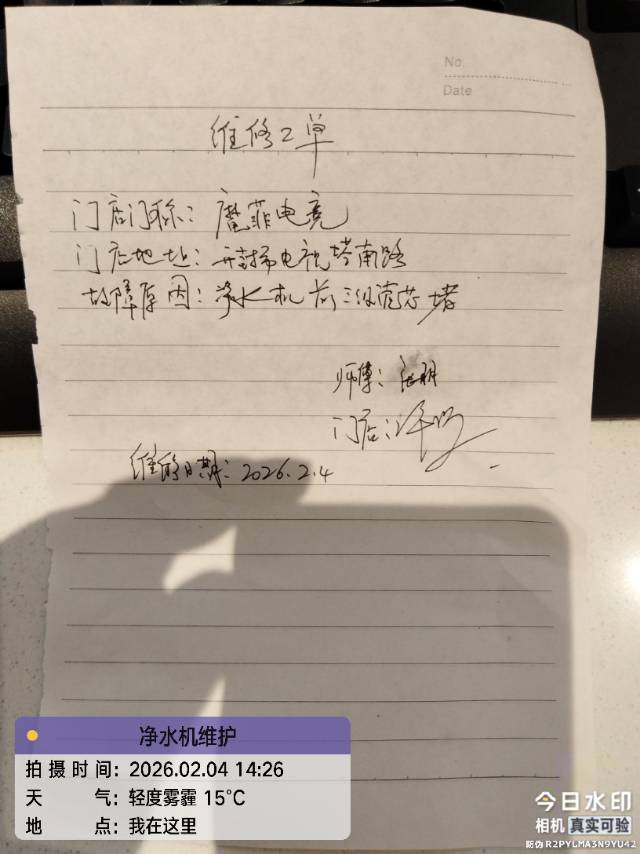 No.
Date
维修工单
门店门称：魔菲电竞
门店地址：开封市电视塔南路
故障原因：净水机前三级滤芯堵
师傅：
门店：
维修日期：2026.2.4
净水机维护
拍摄时间：2026.02.04 14:26
天气：轻度雾霾 15℃
地点：我在这里
今日水印
相机 真实可验
防伪 R2PYLMA3N9YU42